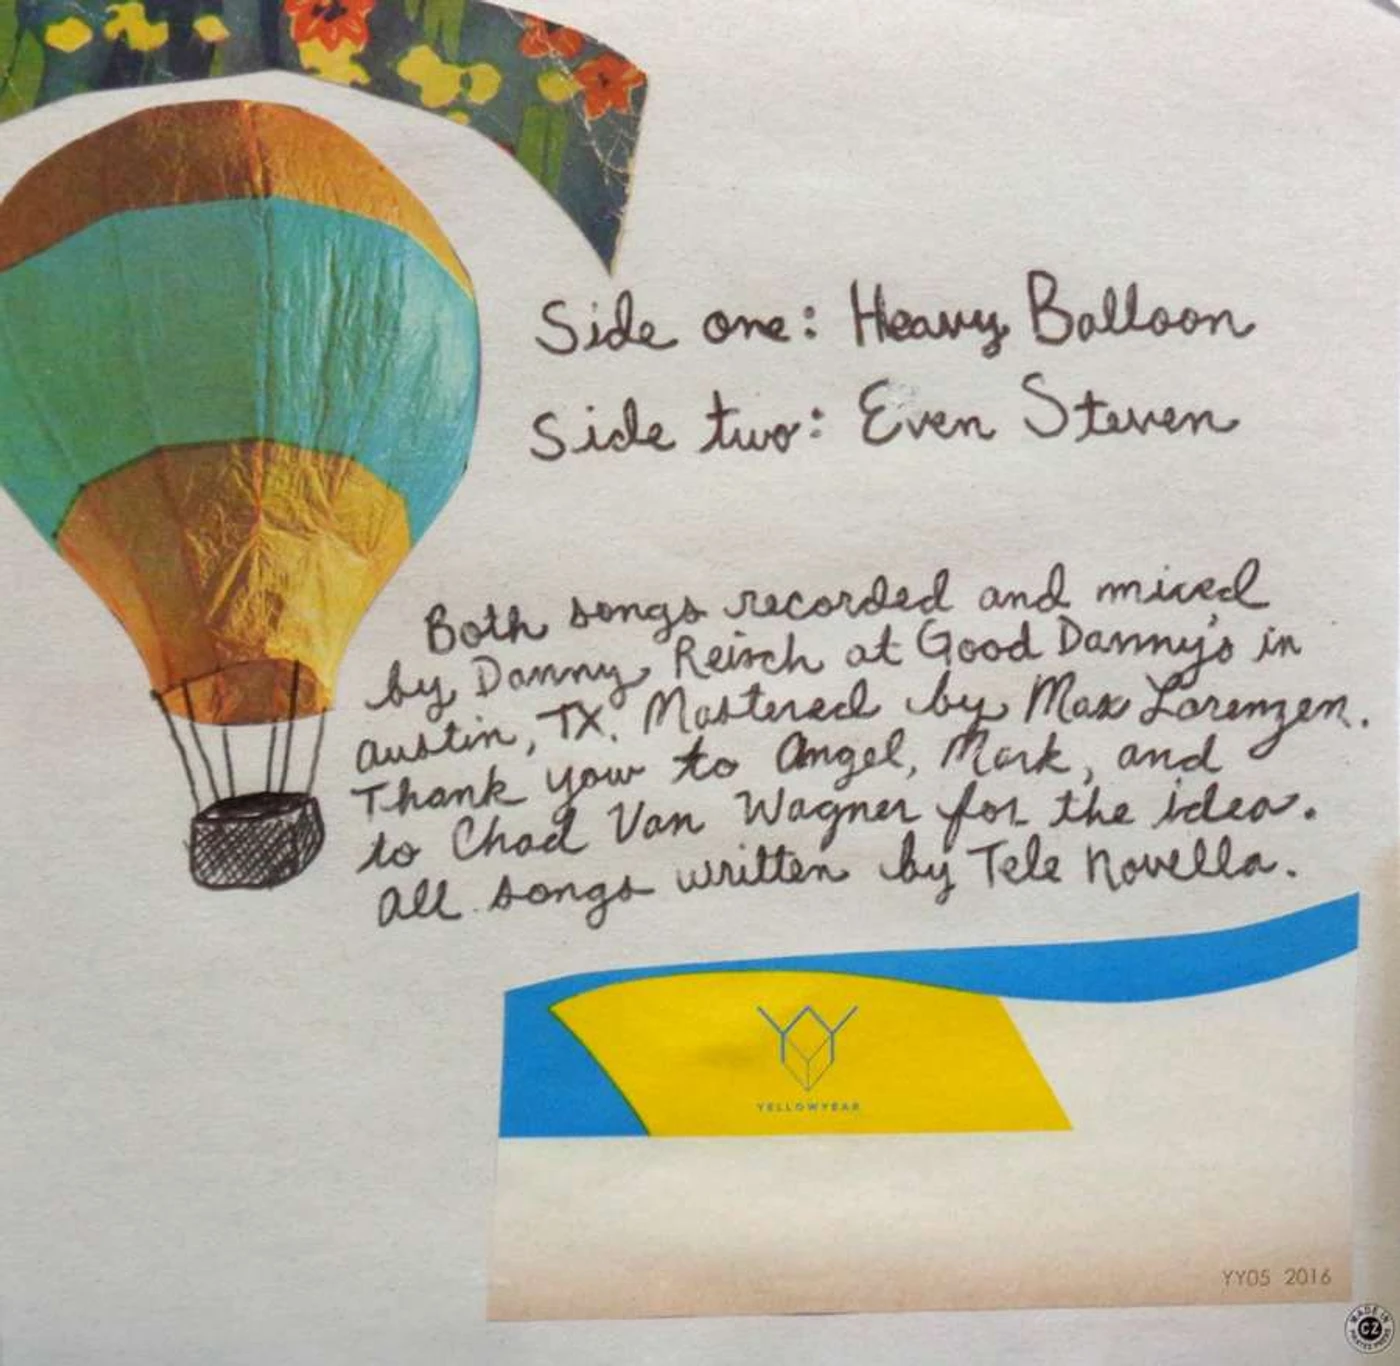 Side one: Heavy Balloon
Side two: Even Steven
Both songs recorded and mixed
by Danny Reisch at Good Danny's in
Austin, TX. Mastered by Max Lorenzen.
Thank you to Angel, Mark, and
to Chad Van Wagner for the idea.
All songs written by Tele Novella.
YELLOWYEAR
YY05 2016
MADE IN
CZ